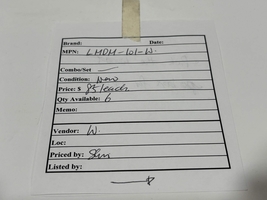 Brand: Date:
MPN: LMDM-101-W.
Combo/Set —
Condition: New
Price: $ /each
Qty Available: 6
Memo:
Vendor: W.
Loc:
Priced by:
Listed by: